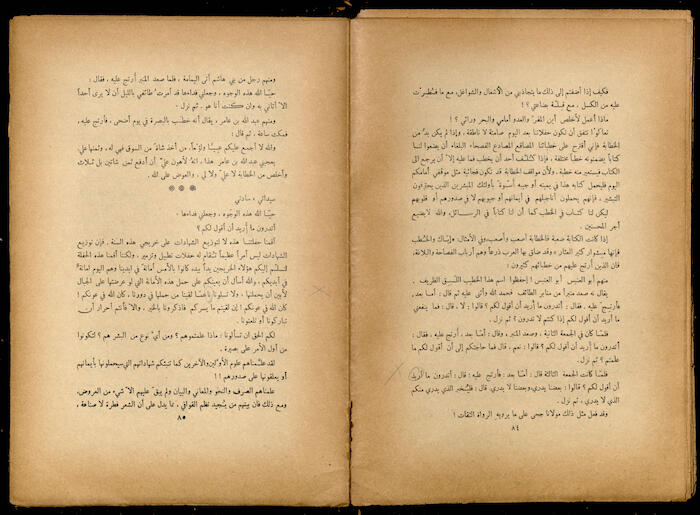 فكيف إذا أضفتم إلى ذلك ما يتجاذبني من الأشغال والشواغل، مع ما فُطرتُ
عليه من الكسل، مع قلّة بضاعتي ؟ !
ماذا أعمل لأخلص أين المفر، والعدو أمامي والبحر ورائي ؟ !
تعالوا نتفق أن تكون حفلاتنا بعد اليوم صامتة لا ناطقة، وإذا لم يكن بدٌّ من
الخطابة فإني أقترح على خطبائنا المصاقع الفصحاء البلغاء أن يضعوا لنا
كتاباً يضمنونه خطباً مختلفة، فإذا كُلّف أحد أن يخطب فما عليه إلا أن يرجع الى
الكتاب فيستعير منه خطبة. ولأن مواقف الخطابة قد تكون فجائية مثل موقفي أمامكم
اليوم فليحمل كتابه هذا في يمينه أو جيبه أُسوةً بأولئك المبشرين الذين يحترفون
التبشير، فإنهم يحملون أناجيلهم في أيمانهم أو جيوبهم لا في صدورهم أو قلوبهم
ليكن لنا كتاب في الخطب كما أن لنا كتاباً في الرسائل، والله لا يضيع
أجر المحسنين .
إذا كانت الكتابة صعبة فالخطابة أصعب وأصعب، وفي الأمثال: «إياك والخُطَب
فإنها مشوار كثير العثار» وقد ضاق بها العرب ذرعاً وهم أرباب الفصاحة واللآنة،
فان الذين أرتج عليهم من خطبائهم كثيرون :
منهم أبو العنبس ، أبو العنبس ! إحفظوا اسم هذا الخطيب اللّسِن الظريف .
يقال انه صعد منبراً من منابر الطائف فحمد الله وأثنى عليه ثم قال : أمّا بعد،
فأُرتِج عليه. فقال : أتدرون ما أريد أن أقول لكم ؟ قالوا : لا. قال : فما ينفعني
ما أريد أن أقول لكم إذا كنتم لا تدرون ؟ ثم نزل .
فلمّا كان في الجمعة الثانية، وصعد المنبر، وقال : أمّا بعد، أُرتج عليه، فقال :
أتدرون ما أريد أن أقول لكم ؟ قالوا : نعم. قال فما حاجتكم إلى أن أقول لكم ما
علمتم ؟ ثم نزل .
فلمّا كانت الجمعة الثالثة قال : أمّا بعد : فأرتج عليه : قال : أتدرون ما أريد
أن أقول لكم ؟ قالوا : بعضنا يدري، وبعضنا لا يدري. قال : فليُخبر الذي يدري منكم
الذي لا يدري، ثم نزل .
وقد فعل مثل ذلك مولانا جحى على ما يرويه الرواة الثقات !
٨٤
ومنهم رجل من بني هاشم أتى اليمامة ، فلما صعد المنبر أرتج عليه ، فقال :
حيّا الله هذه الوجوه ، وجعلني فداءها قد أمرتُ طائفي بالليل أن لا يرى أحداً
إلا أتاني به وان كنت أنا هو. ثم نزل .
ومنهم عبد الله بن عامر، يقال أنه خطب بالبصرة في يوم أضحى ، فأُرتج عليه ،
فمكث ساعة ، ثم قال :
والله لا أجمع عليكم عِيّاً ولؤماً. من أخذ شاة من السوق فهي له، وثمنها علي
يعجبني عبد الله بن عامر هذا. انه لأهون عليّ أن أدفع ثمن شاتين بل ثلاث
وأخلص من الخطابة لا عليّ ولا لي ، والعوض على الله .
* * *
سيداتي ، سادتي
حيّا الله هذه الوجوه ، وجعلني فداءها .
أتدرون ما أريد أن أقول لكم ؟
أقمنا حفلتنا هذا لا لتوزيع الشهادات على خريجي هذه السنة. فإن توزيع
الشهادات ليس أمراً عظيماً تُقام له حفلات تطبيل وتزمير ، ولكننا أقمنا هذه الحفلة
لنسلّم إليكم هؤلاء الخريجين يداً بيد، كانوا بالأمس أمانة في ايدينا وهم اليوم أمانة
في أيديكم ، والله أسأل أن يعينكم على حمل هذه الأمانة التي لو عرضتها على الجبال
لأبين أن يحملنها ، ولا تسلونا بالله ماذا لقينا من حملها في دورنا . كان الله في عونكم !
كان الله في عونكم ! إن لقيتم ما يسركم فاذكرونا بالخير . وإلا فأنتم أحرار أن
تباركونا أو تلعنونا .
لكم الحق ان تسألونا : ماذا علمتموهم ؟ ومن أي نوع من البشر هم ؟ لتكونوا
من أول الأمر على بصيرة .
لقد علّمناهم علوم الأوّلين والآخرين كما تنبئكم شهاداتهم التي سيحملونها بأيمانهم
أو يعلقونها على صدورهم !!
علمناهم الصرف والنحو والمعاني والبيان ولم يبق عليهم إلا شيء من العروض،
ومع ذلك فان بينهم من يُجيد نظم القوافي ، مما يدل على أن الشعر فطرة لا صناعة ،
٨٥